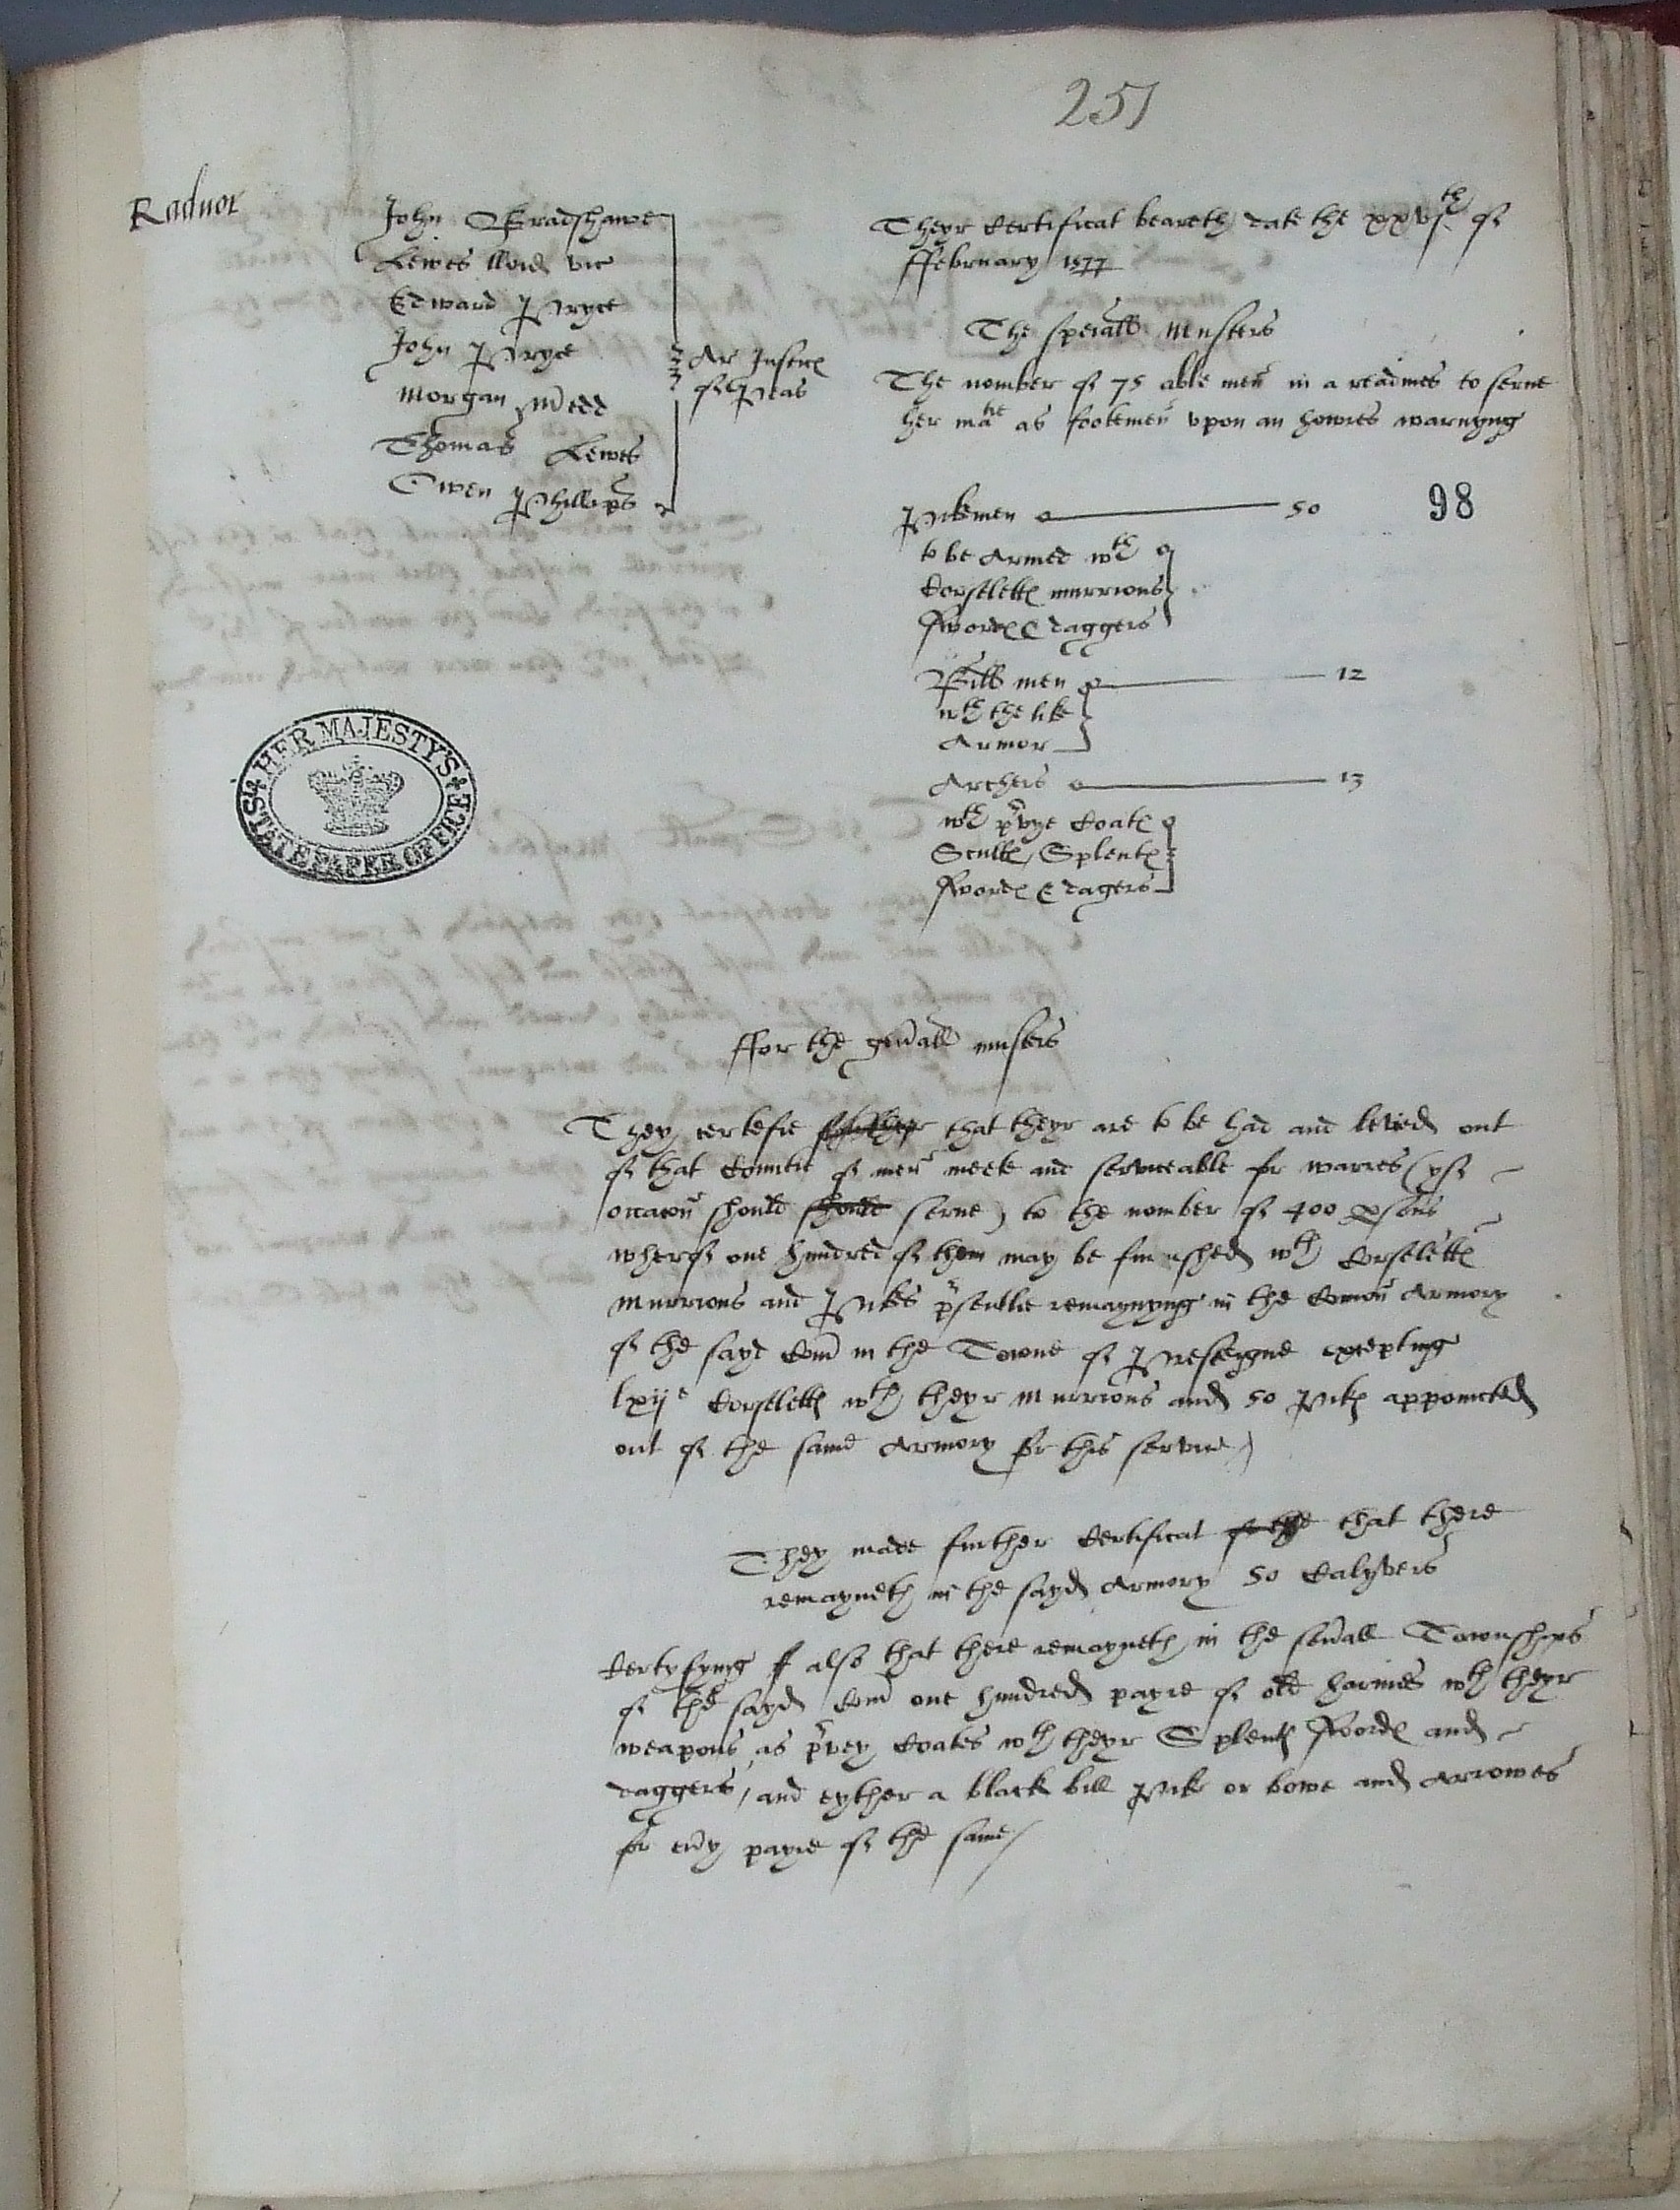 251
Radnor
John Bradshawe
Lewes lloid vic
Edward Pryce
John Pryce
Morgan Medd
Thomas Lewes
Owen Phillips
Ar Justic
of Peas
Theyr Certificat beareth date the xxvjth of
ffebruary 1577
The speciall Musters
The nomber of 75 able men in a readines to serue
her matie as footemen vpon an howres warnyng
98
Pikemen 50
to be Armed wth
Corslett murrions
sword & daggers
Bill men 12
wth the like
Armor
Archers 13
wth pvye Coate
Scull, Splent
sword & dagers
ffor the genall musters
They certefie further that theyr are to be had and levied out
of that Countie of men meete and serviceable for warres (yf
occacon should should serue) to the nomber of 400 psons
wherof one hundred of them may be furnished wth Corselett
Murrions and Pikes psentlie remaynyng in the Comon Armory
of the sayd Com in the Towne of Presteigne excepting
lxije Corslett wth theyr Murrions and 50 Pik appoincted
out of the same Armory for this service
They made further Certificat that there
remayneth in the sayd Armory 50 Calyvers
Certyfying also that there remayneth in the seuall Townships
of the sayd Com one hundred payre of old harnies wth theyr
weapons as pvey Coates wth theyr Splent swordes and
daggers, and eyther a black bill Pike or bowe and Arrowes
for eury payre of the same
HER MAJESTY'S
STATE PAPER OFFICE